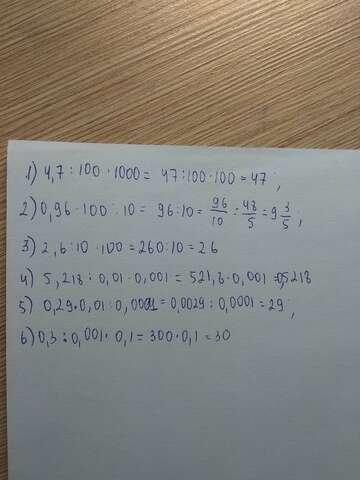 1) 4,7 : 100 · 1000 = 47 : 100 · 100 = 47 ;
2) 0,96 · 100 : 10 = 96 : 10 = 96/10 = 48/5 = 9 3/5 ;
3) 2,6 : 10 · 100 = 260 : 10 = 26
4) 5,218 : 0,01 · 0,001 = 521,8 · 0,001 = 0,5218
5) 0,29 · 0,01 : 0,0001 = 0,0029 : 0,0001 = 29 ;
6) 0,3 : 0,001 · 0,1 = 300 · 0,1 = 30